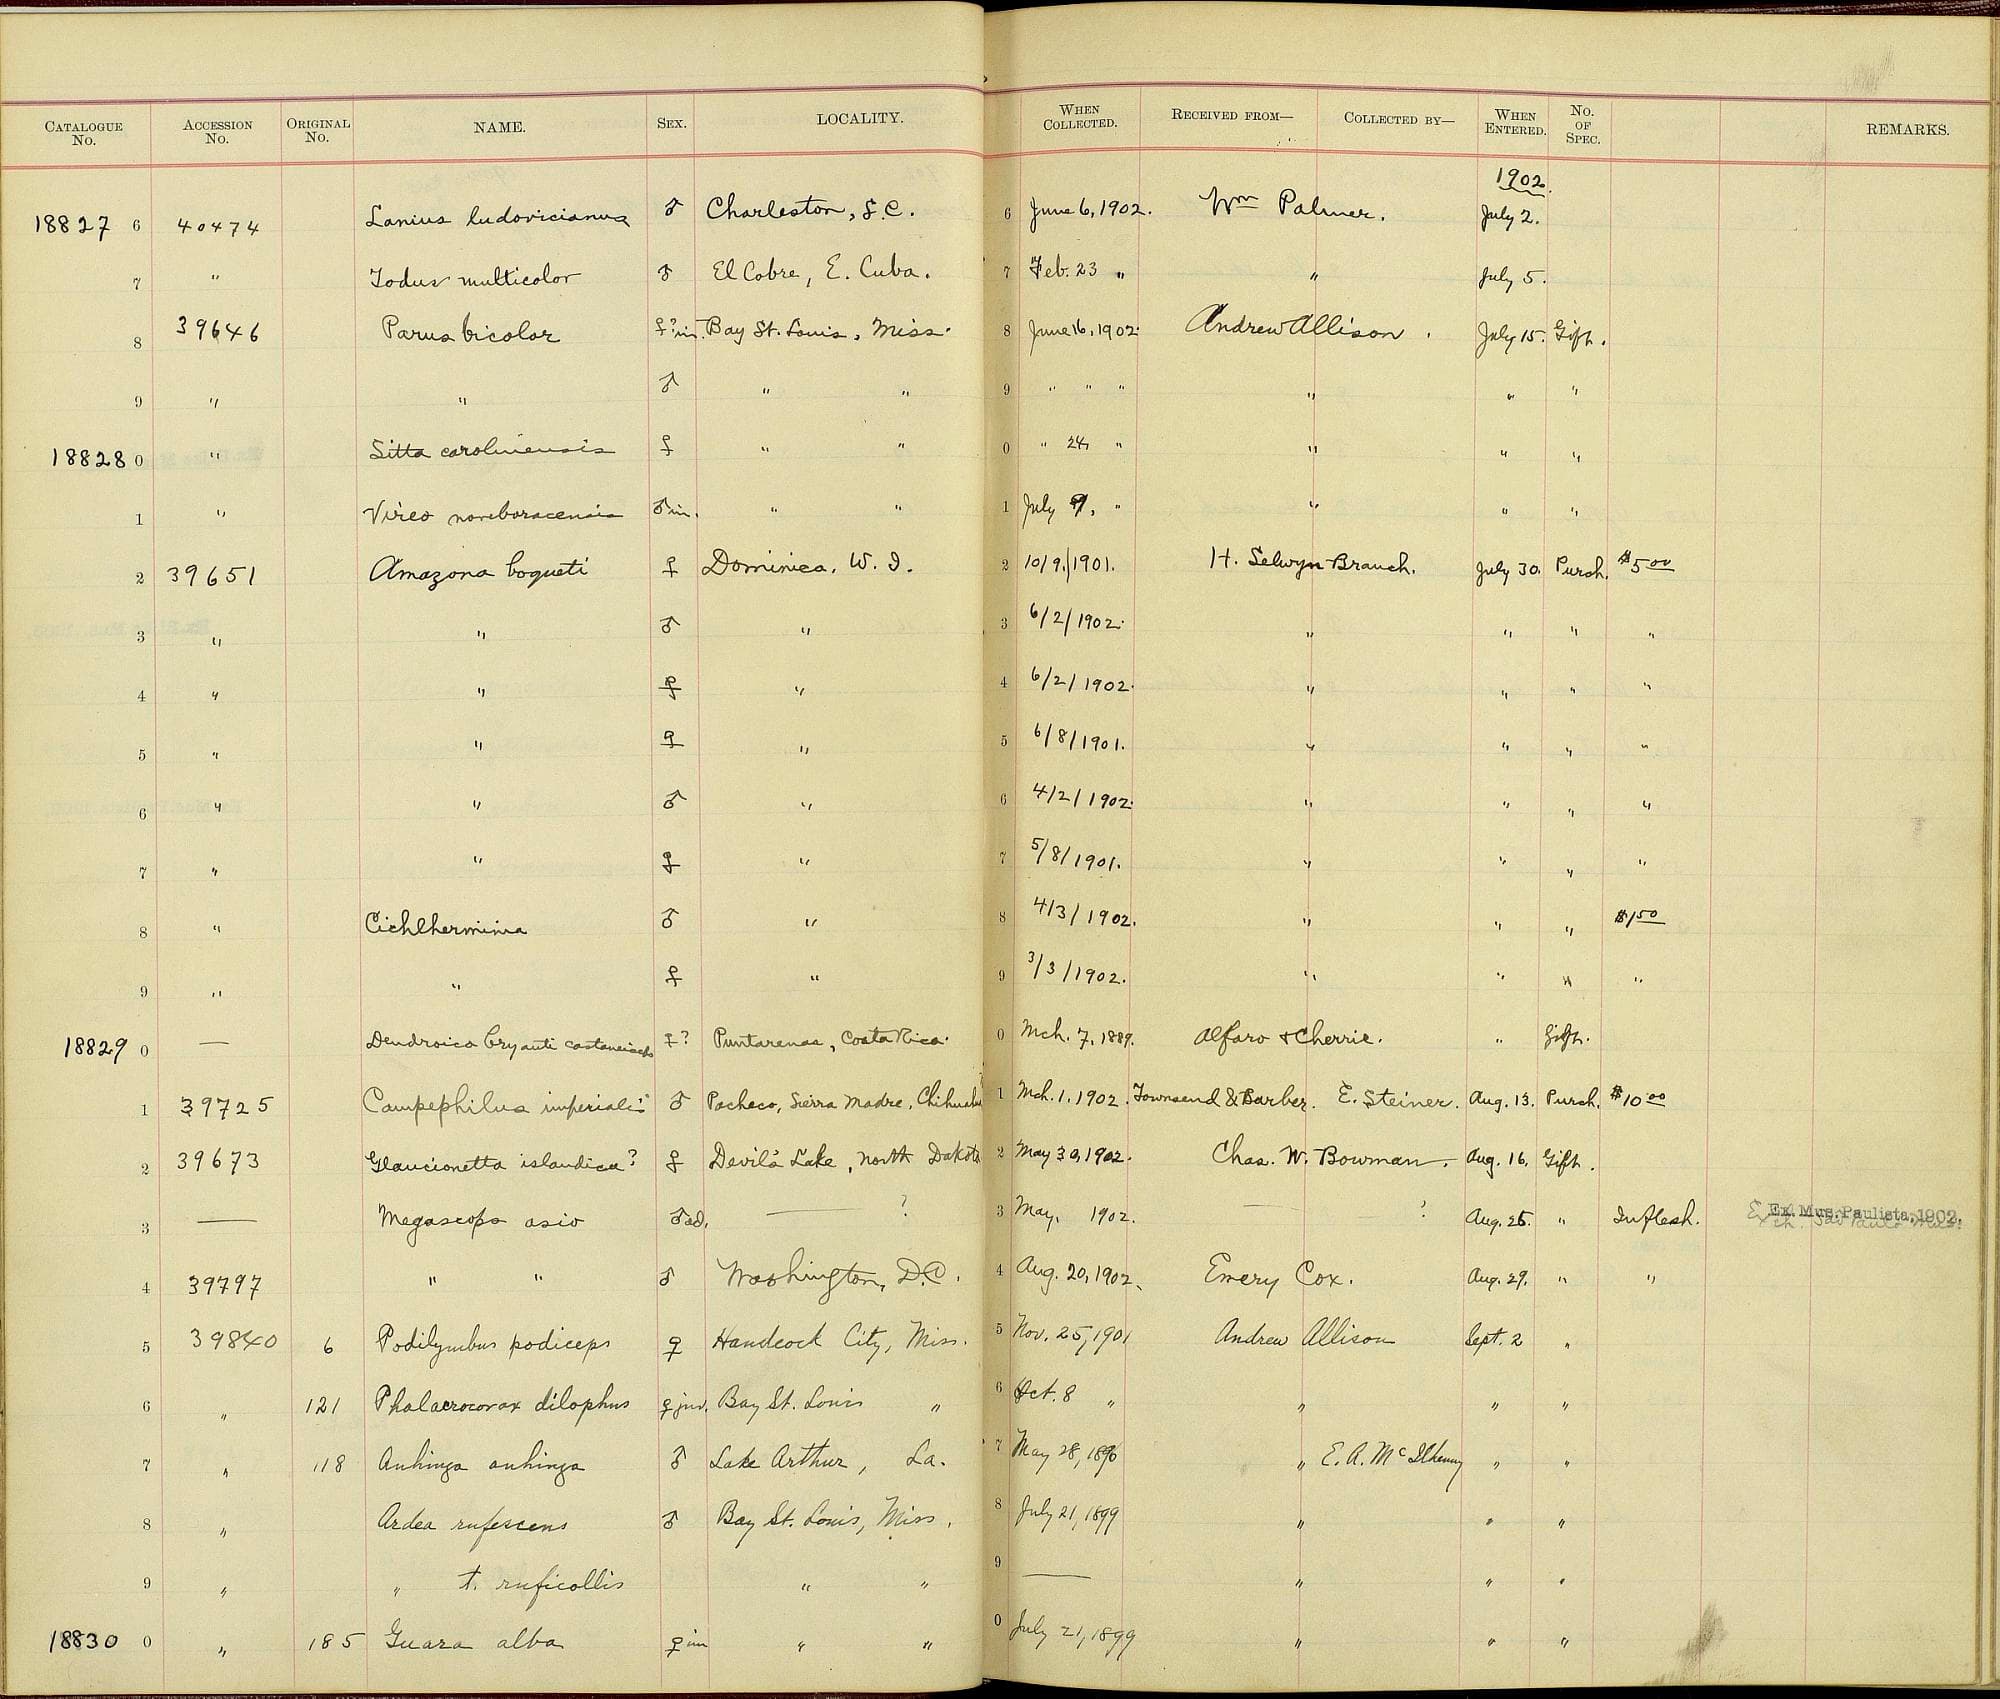 CATALOGUE No. ACCESSION No. ORIGINAL No. NAME. SEX. LOCALITY. WHEN COLLECTED. RECEIVED FROM— COLLECTED BY— WHEN ENTERED. No. OF SPEC. REMARKS.
1902.
18827 6 40474 Lanius ludovicianus ♂ Charleston, S.C. 6 June 6, 1902. Wm Palmer. July 2.
7 " Todus multicolor ♂ El Cobre, E. Cuba. 7 Feb. 23 " " July 5.
8 39646 Parus bicolor ♀? im. Bay St. Louis, Miss. 8 June 16, 1902. Andrew Allison. July 15. Gift.
9 " " ♂ " " 9 " " " " " "
18828 0 " Sitta carolinensis ♀ " " 0 " 24, " " " "
1 " Vireo noveboracensis ♂ im. " " 1 July 9, " " " "
2 39651 Amazona boqueti ♀ Dominica, W. I. 2 10/9/1901. H. Selwyn Branch. July 30. Purch. $5.00
3 " " ♂ " 3 6/2/1902. " " " "
4 " " ♀ " 4 6/2/1902. " " " "
5 " " ♀ " 5 6/8/1901. " " " "
6 " " ♂ " 6 4/2/1902. " " " "
7 " " ♀ " 7 5/8/1901. " " " "
8 " Cichlherminia ♂ " 8 4/3/1902. " " " $1.50
9 " " ♀ " 9 3/3/1902. " " " "
18829 0 — Dendroica bryanti castaneiceps ♀? Puntarenas, Costa Rica. 0 Mch. 7, 1889. Alfaro & Cherrie. " Gift.
1 39725 Campephilus imperialis ♂ Pacheco, Sierra Madre, Chihuahua 1 Mch. 1, 1902. Townsend & Barber. E. Steiner. Aug. 13. Purch. $10.00
2 39673 Glaucionetta islandica? ♀ Devil's Lake, North Dakota 2 May 30, 1902. Chas. W. Bowman. Aug. 16. Gift.
3 — Megascops asio ♂ ad. — ? 3 May, 1902. — ? Aug. 25. " In flesh. Ex. Mus. Paulista, 1902.
4 39797 " " ♂ Washington, D.C. 4 Aug. 20, 1902. Emery Cox. Aug. 29. " "
5 39840 6 Podilymbus podiceps ♀ Handcock City, Miss. 5 Nov. 25, 1901 Andrew Allison Sept. 2 "
6 " 121 Phalacrocorax dilophus ♀ juv. Bay St. Louis " 6 Oct. 8 " " " "
7 " 118 Anhinga anhinga ♂ Lake Arthur, La. 7 May 28, 1896 " E. A. McIlhenny " "
8 " Ardea rufescens ♂ Bay St. Louis, Miss. 8 July 21, 1899 " " "
9 " " t. ruficollis " " 9 — " " "
18830 0 " 185 Guara alba ♀ im " " 0 July 21, 1899 " " "